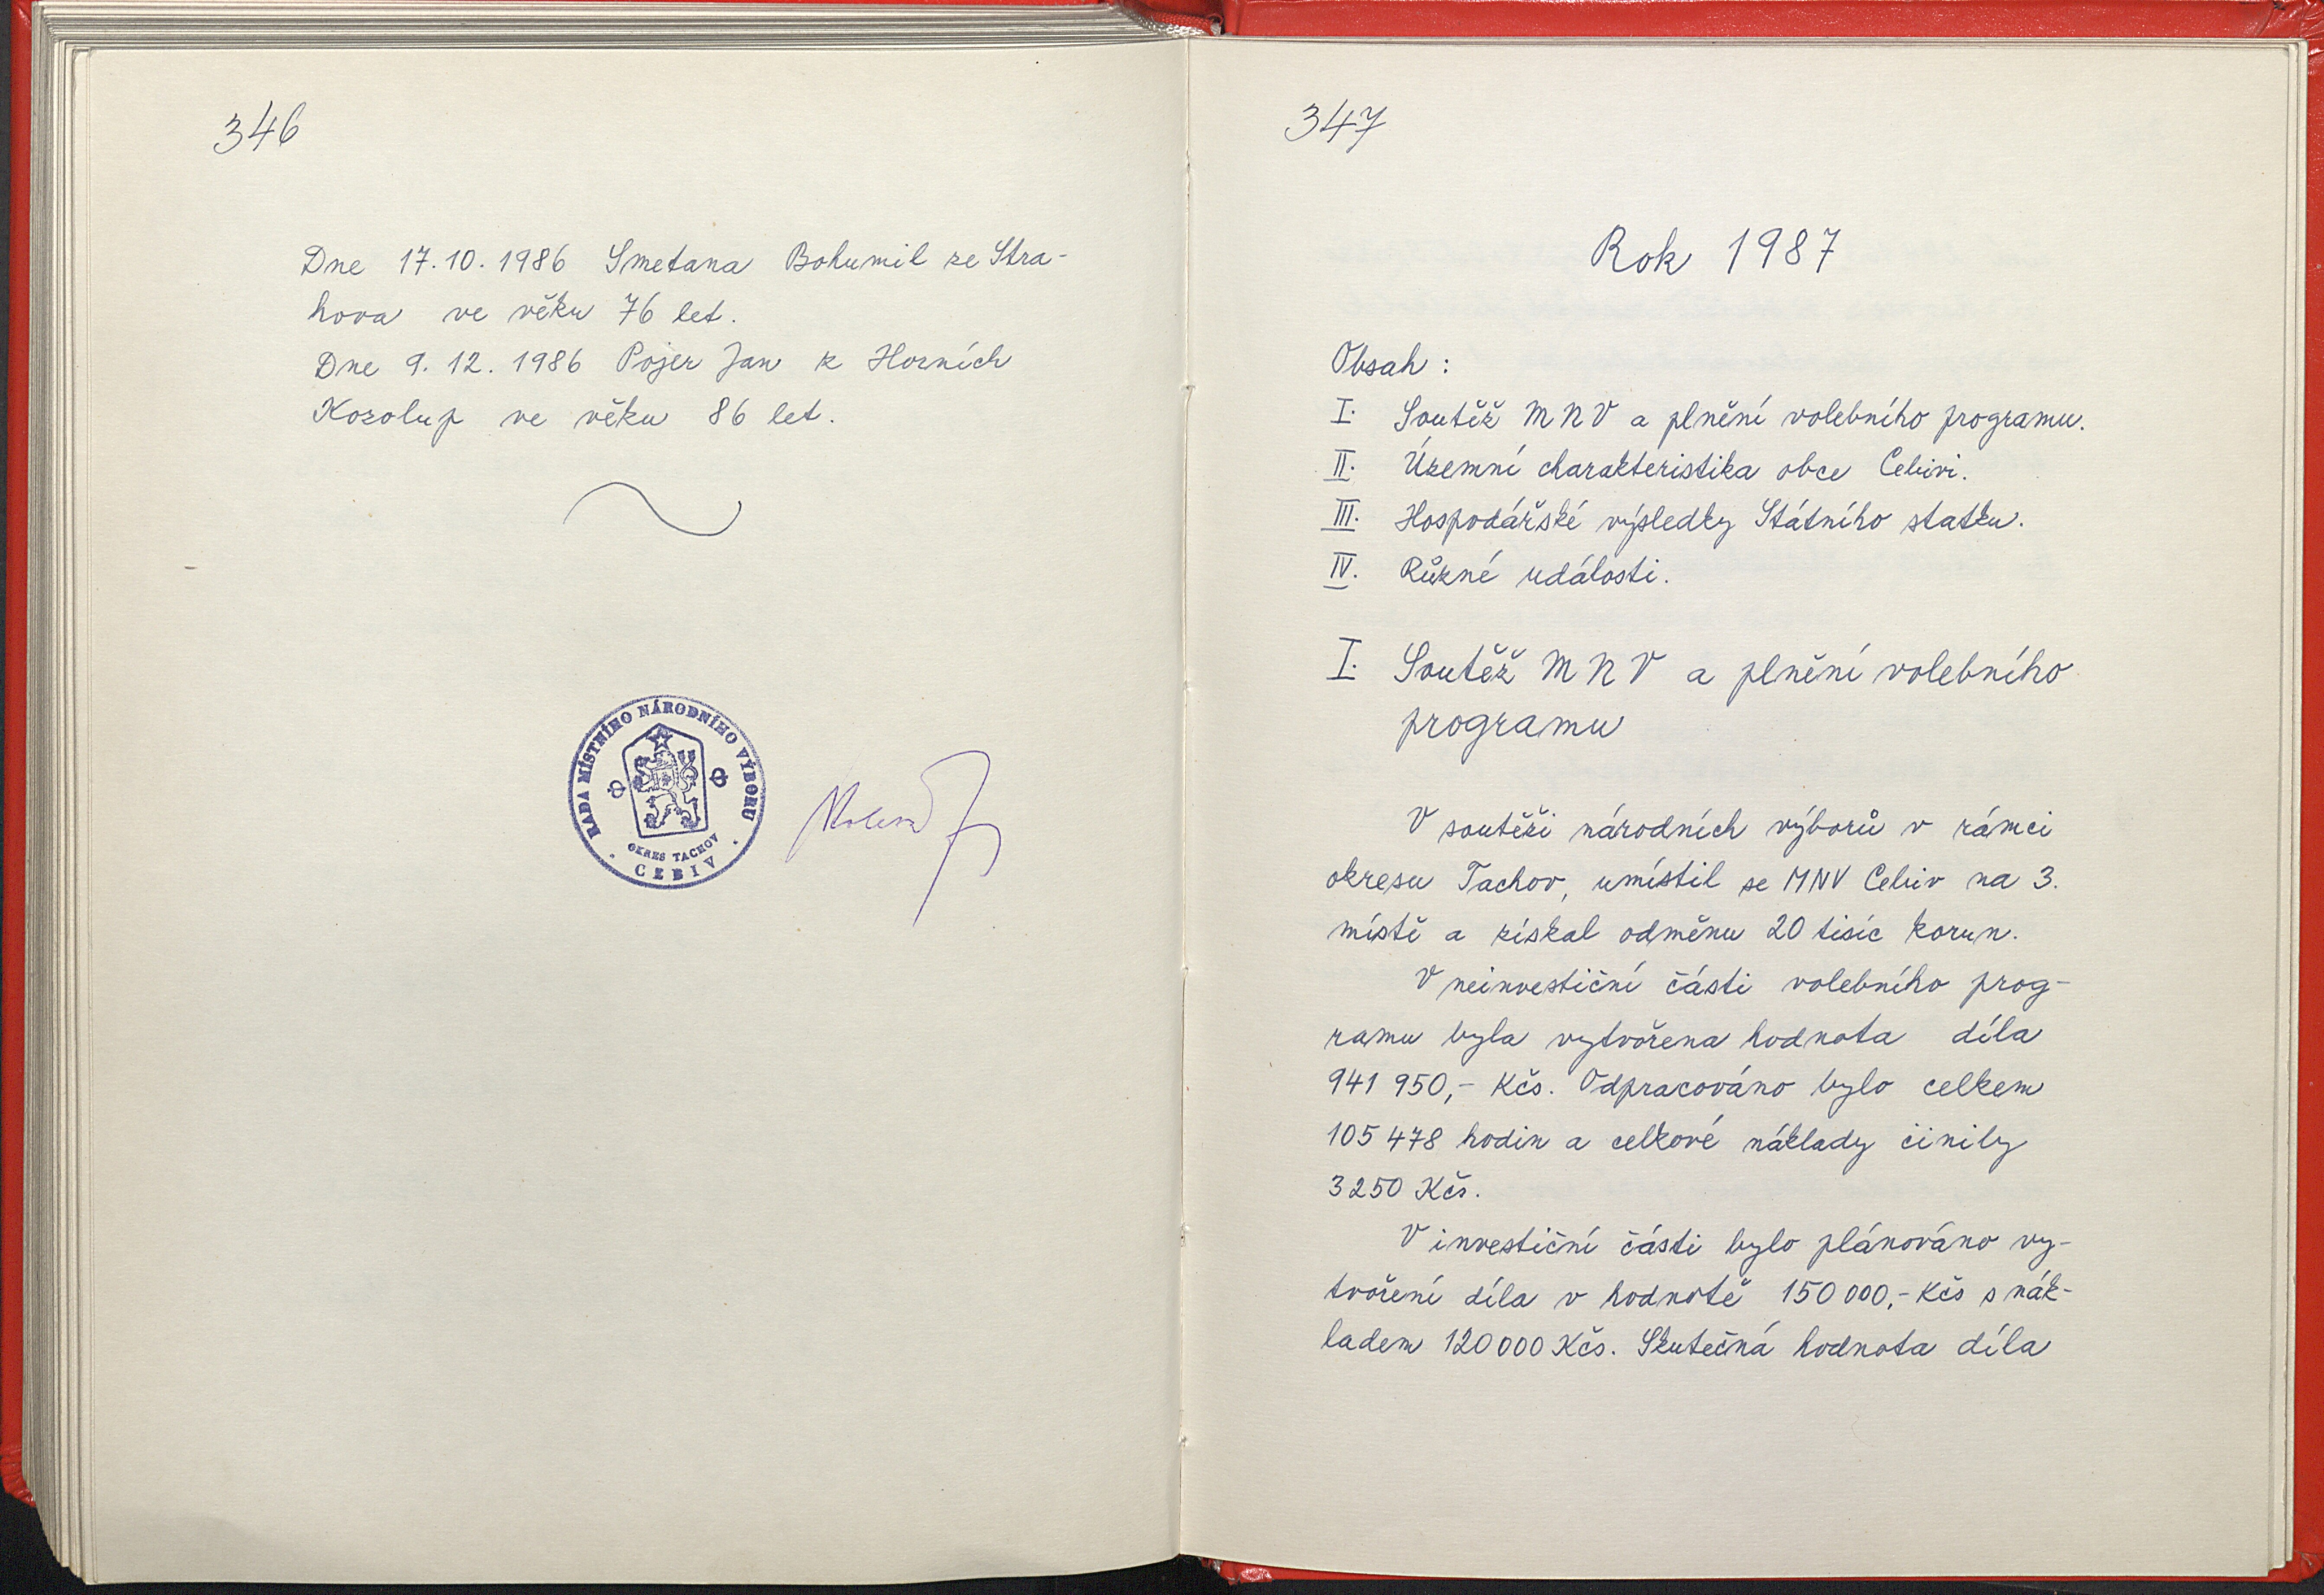 346
Dne 17. 10. 1986 Smetana Bohumil ze Stra-
hova ve věku 76 let.
Dne 9. 12. 1986 Pojer Jan z Horních
Kozolup ve věku 86 let.
RADA MÍSTNÍHO NÁRODNÍHO VÝBORU
OKRES TACHOV
CEBIV
347
Rok 1987
Obsah:
I. Soutěž MNV a plnění volebního programu.
II. Územní charakteristika obce Cebivi.
III. Hospodářské výsledky Státního statku.
IV. Různé události.
I. Soutěž MNV a plnění volebního
programu
V soutěži národních výborů v rámci
okresu Tachov, umístil se MNV Cebiv na 3.
místě a získal odměnu 20 tisíc korun.
V neinvestiční části volebního prog-
ramu byla vytvořena hodnota díla
941 950,- Kčs. Odpracováno bylo celkem
105 478 hodin a celkové náklady činily
3250 Kčs.
V investiční části bylo plánováno vy-
tvoření díla v hodnotě 150 000,- Kčs s nák-
ladem 120 000 Kčs. Skutečná hodnota díla